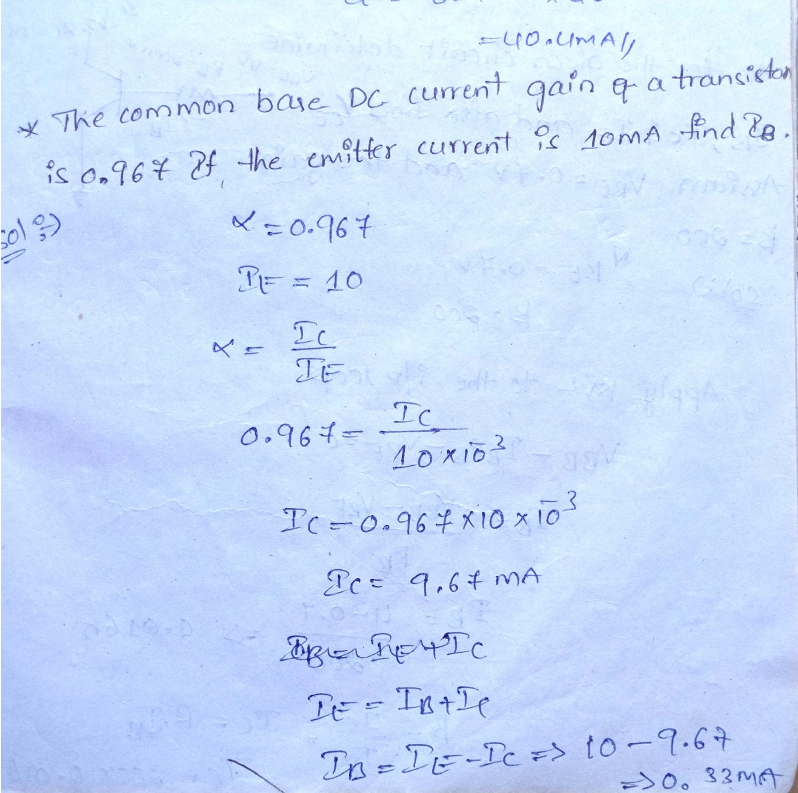 =40.4mA//
* The common base DC current gain of a transistor
is 0.967 If, the emitter current is 10mA find IB.
Sol:)
α = 0.967
IE = 10
α = IC / IE
0.967 = IC / 10 x 10^-3
IC = 0.967 x 10 x 10^-3
IC = 9.67 mA
IE = IB + IC
IB = IE - IC => 10 - 9.67
=> 0.33mA